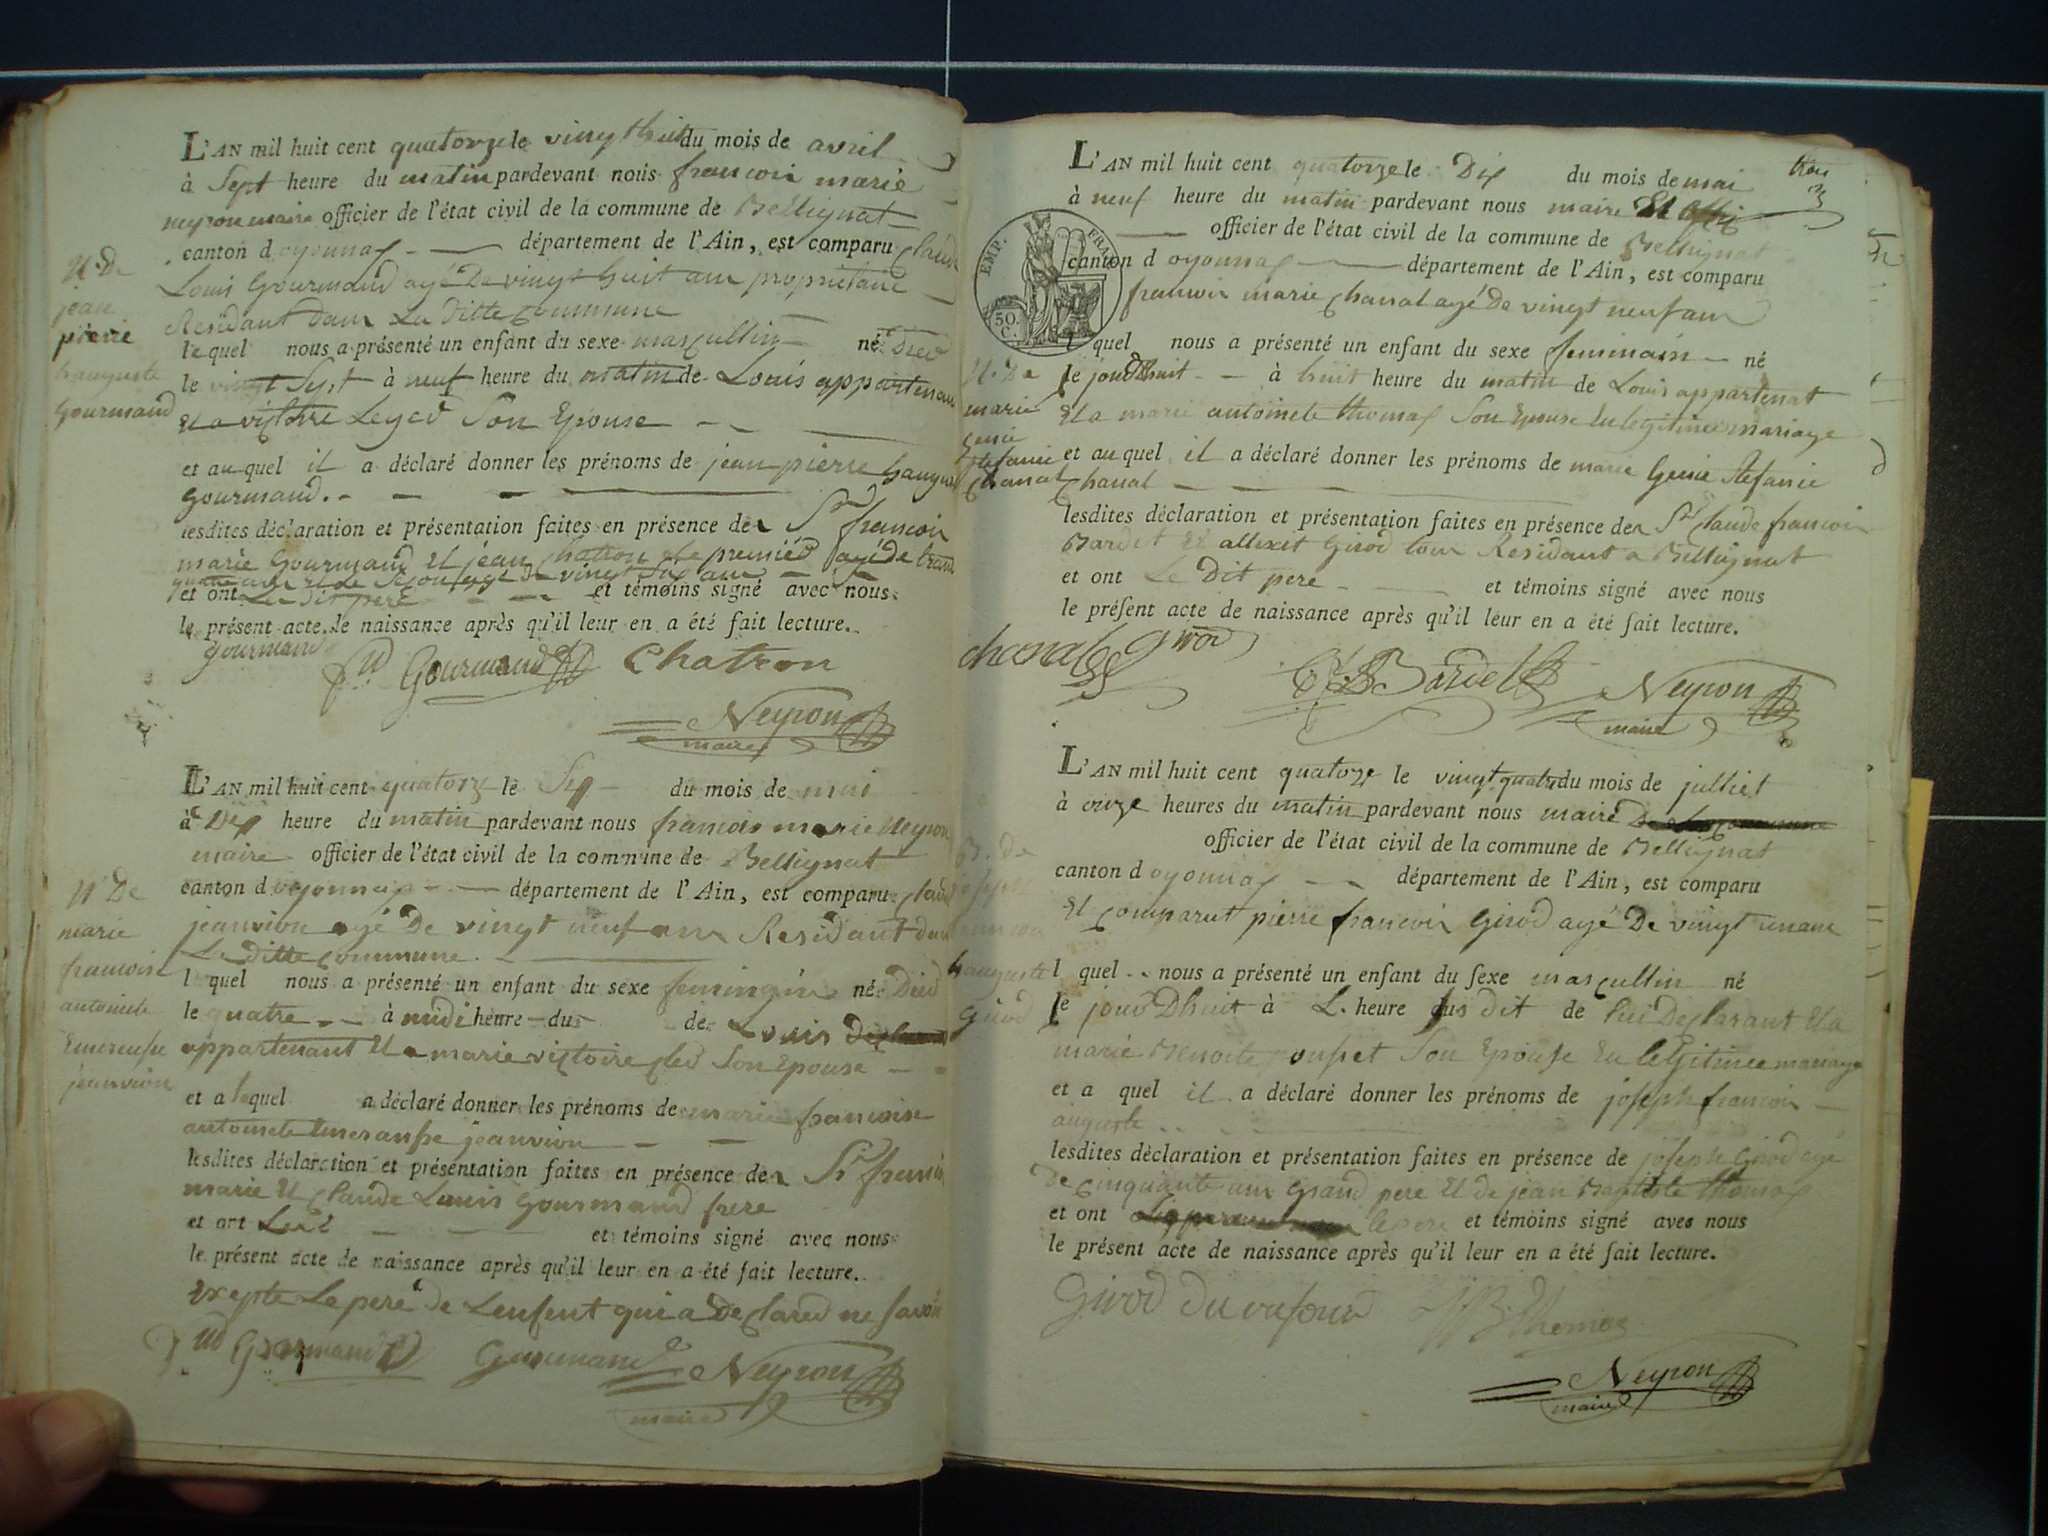 L'AN mil huit cent quatorze le vingt huit du mois de avril
à sept heure du matin pardevant nous francois marie
neyron maire officier de l'état civil de la commune de Bellignat
canton d oyonnax département de l'Ain, est comparu Claude
Louis Gourmand agé De vingt huit ans propriétaire
Residant Dans La Ditte Commune
N. De
jean
pierre
hauguste
Gourmand
lequel nous a présenté un enfant du sexe masqullin né
le vingt sept à neuf heure du matin de Louis appartenant
Et a victoire Leger Son Epouse
et au quel il a déclaré donner les prénoms de jean pierre hauguste
gourmand.
lesdites déclaration et présentation faites en présence des Sr francois
marie Gourmand Et jean Chatron Le premier agé de trante
quatre ans Et Le Segond agé De vingt Six ans
et ont Le Dit pere et témoins signé avec nous
le présent acte de naissance après qu'il leur en a été fait lecture.
Gourmand
Gourmand Chatron
Neyron
maire
L'AN mil huit cent quatorze le Six du mois de mai
à Dix heure du matin pardevant nous francois marie Neyron
maire officier de l'état civil de la commune de Bellignat
canton d oyonnax département de l'Ain, est comparu Claude
jeanvion agé De vingt neuf ans Residant Dans
La Ditte Commune.
N De
marie
francoise
antoinete
jeanvion
l quel nous a présenté un enfant du sexe feminain né
le quatre à midi heure du de Louis
appartenant Et a marie victoire Son Epouse
et a lequel a déclaré donner les prénoms de marie francoise
antoinete jeanvion
lesdites déclaration et présentation faites en présence des Sr francois
marie Et Claude Louis Gourmand frere
et ont et témoins signé avec nous
le présent acte de naissance après qu'il leur en a été fait lecture.
Exepte Le pere De Lenfent qui a Declared ne Savoir
Gourmand Gourmand Neyron
maire
L'AN mil huit cent quatorze le Dix du mois de mai
à neuf heure du matin pardevant nous maire Et
officier de l'état civil de la commune de Bellignat
EMP. FRANC.
50. C.
canton d oyonnax département de l'Ain, est comparu
francois marie Chanal agé De vingt neuf ans
l quel nous a présenté un enfant du sexe feminain né
le jour Dhuit à huit heure du matin de Louis appartenat
Et a marie antoinete thomas Son Epouse En legitimee mariage
N. De
marie
Genie
Stefanie
Chanal
et au quel il a déclaré donner les prénoms de marie Genie Stefanie
Chanal
lesdites déclaration et présentation faites en présence des Sr Claude francois
Bardet Et allexet Girod tous Residant a Bellignat
et ont Le Dit pere et témoins signé avec nous
le présent acte de naissance après qu'il leur en a été fait lecture.
chanal Girod Bardet Neyron
maire
L'AN mil huit cent quatorze le vingt quatre du mois de julliet
à onze heures du matin pardevant nous maire
officier de l'état civil de la commune de Bellignat
canton d oyonnax département de l'Ain, est comparu
Et Comparut pierre francois Girod agé De vingt un ans
hauguste
Girod
l quel nous a présenté un enfant du sexe masqullin né
le jour Dhuit à L. heure sus dit de Lui Desclarant Et a
marie Benoite Son Epouse En legitimee mariage
et a quel il a déclaré donner les prénoms de joseph francois
auguste
lesdites déclaration et présentation faites en présence de joseph Girod agé
De Cinquante ans Grand pere Et de jean Baptiste thomas
et ont le pere et témoins signé avec nous
le présent acte de naissance après qu'il leur en a été fait lecture.
Girod JB. Thomas
Neyron
maire